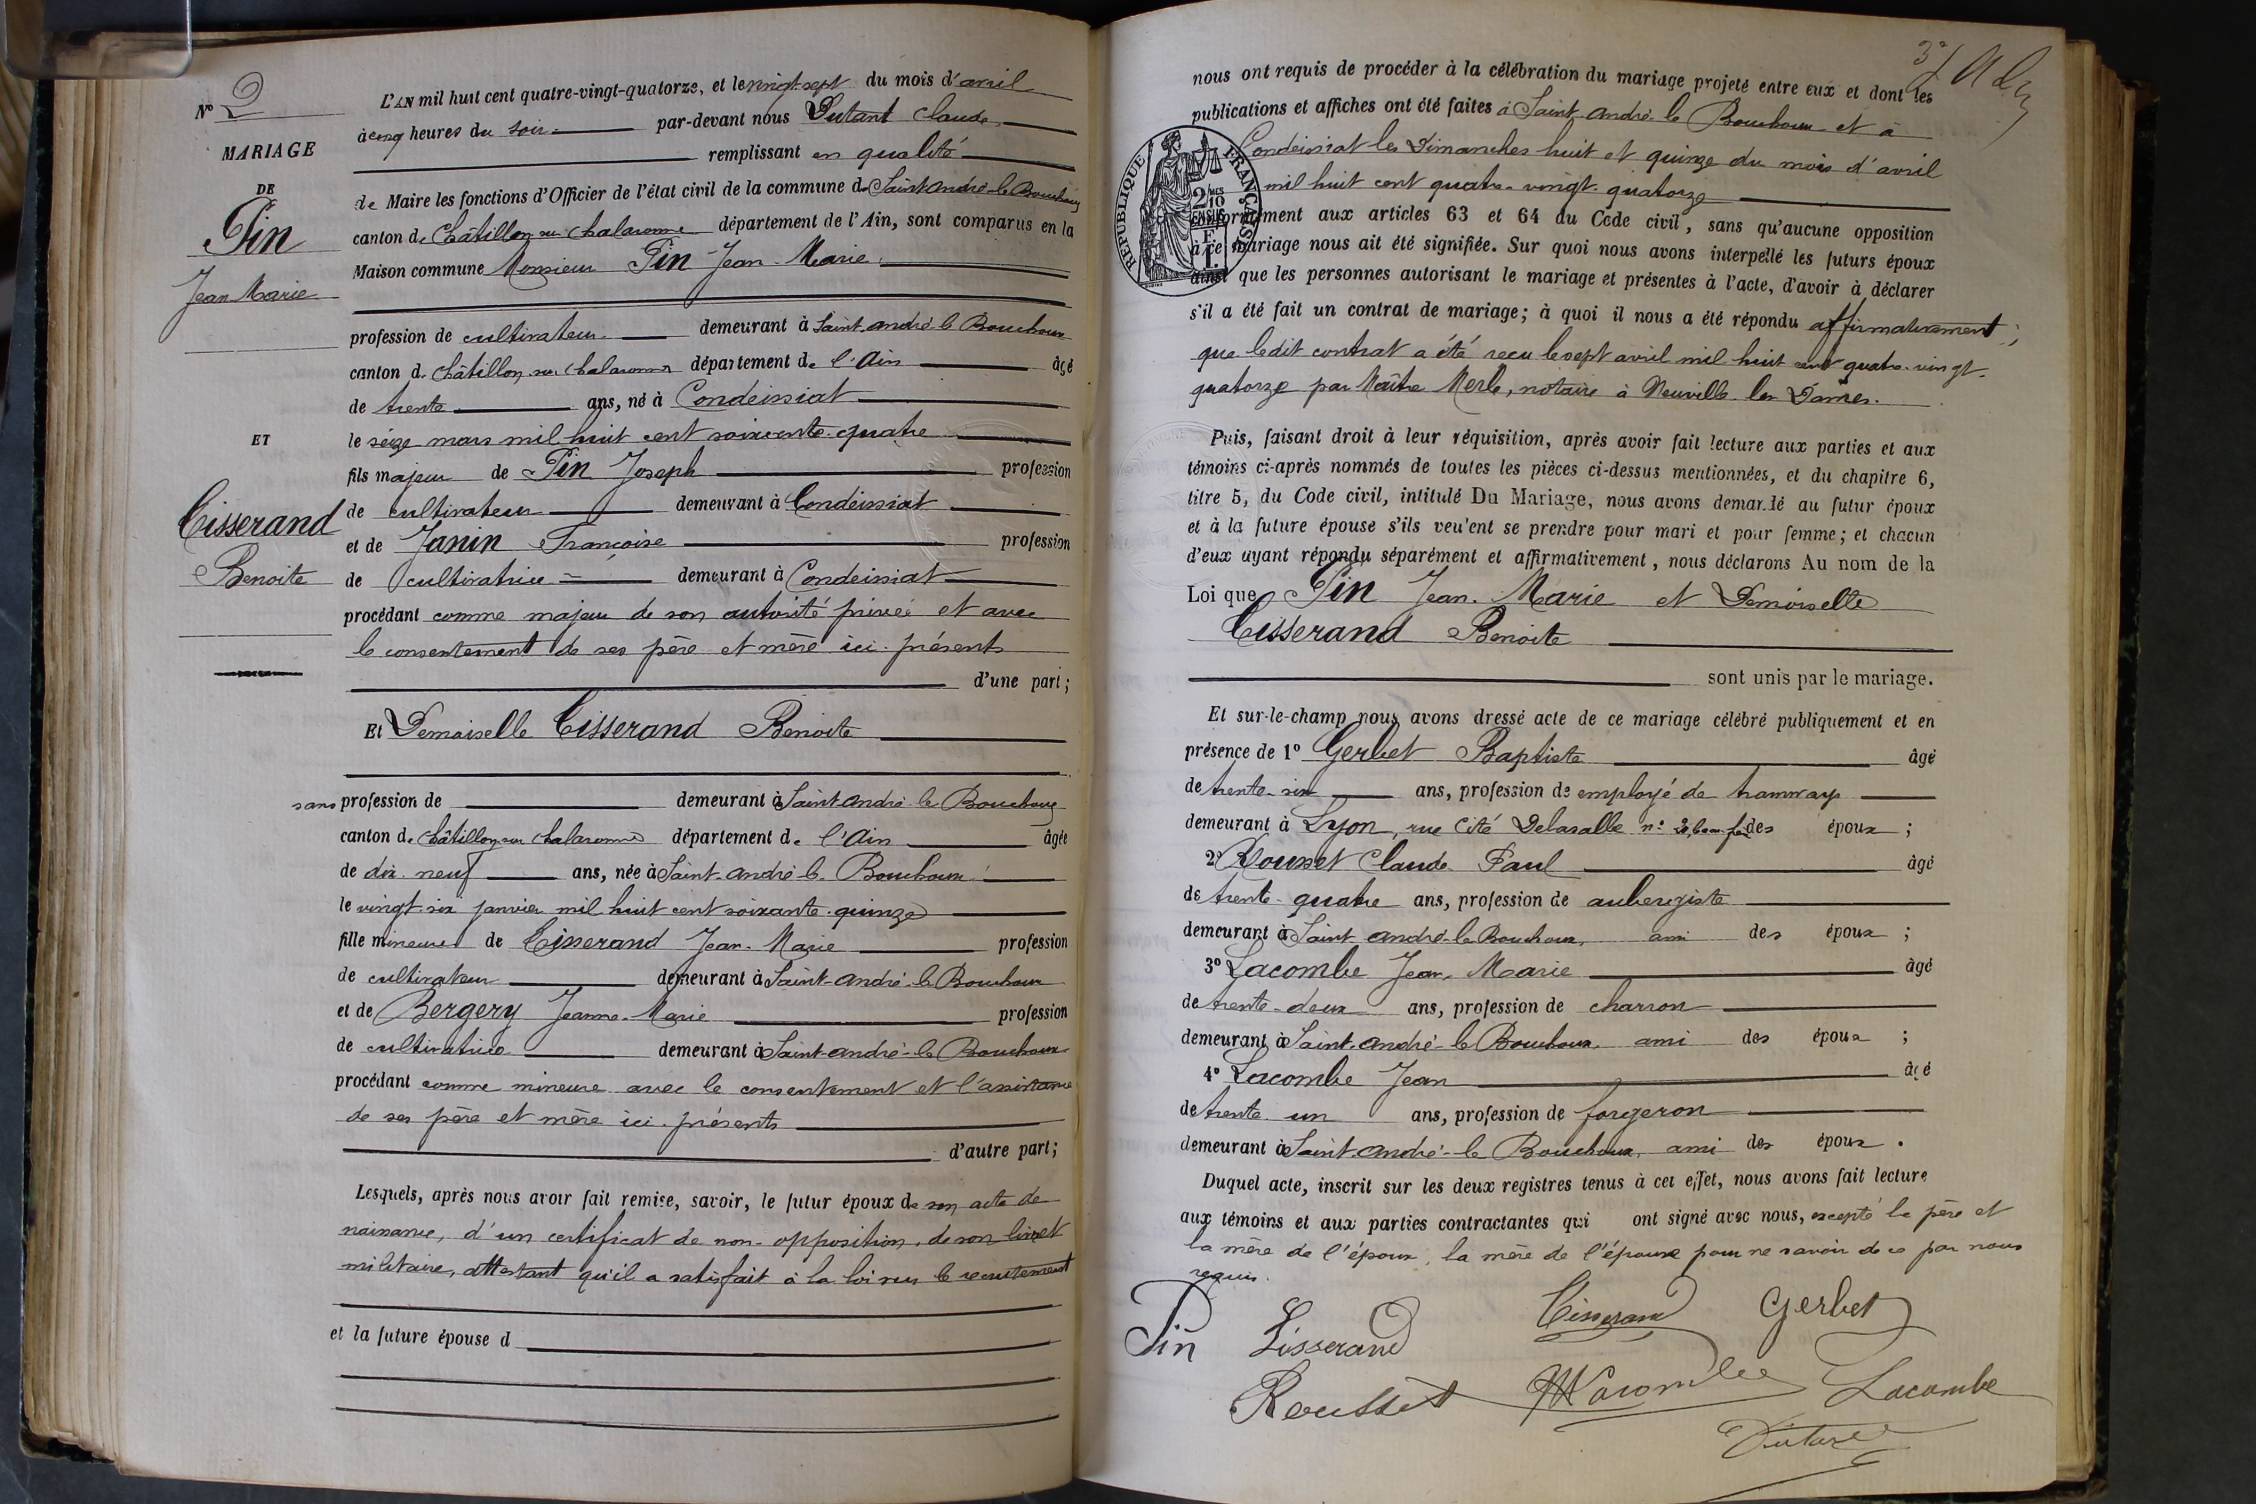 N° 2
MARIAGE
DE
Pin
Jean Marie
ET
Tisserand
Benoite
L'AN mil huit cent quatre-vingt-quatorze, et le vingt-sept du mois d'avril
à cinq heures du soir par-devant nous Dutant Claude
remplissant en qualité
de Maire les fonctions d'Officier de l'état civil de la commune de Saint André-le-Bouchoux
canton de Châtillon sur Chalaronne département de l'Ain, sont comparus en la
Maison commune Monsieur Pin Jean-Marie
profession de cultivateur demeurant à Saint-André-le Bouchoux
canton de Châtillon sur Chalaronne département de l'Ain âgé
de trente ans, né à Condeissiat
le seize mars mil huit cent soixante-quatre
fils majeur de Pin Joseph profession
de cultivateur demeurant à Condeissiat
et de Janin Françoise profession
de cultivatrice demeurant à Condeissiat
procédant comme majeur de son autorité privée et avec
le consentement de ses père et mère ici présents
d'une part;
Et Demoiselle Tisserand Benoite
sans profession de demeurant à Saint-André-le Bouchoux
canton de Châtillon sur Chalaronne département de l'Ain âgée
de dix-neuf ans, née à Saint-André-le-Bouchoux
le vingt-six janvier mil huit cent soixante-quinze
fille mineure de Tisserand Jean-Marie profession
de cultivateur demeurant à Saint-André-le Bouchoux
et de Bergery Jeanne-Marie profession
de cultivatrice demeurant à Saint-André-le Bouchoux
procédant comme mineure avec le consentement et l'assistance
de ses père et mère ici présents
d'autre part;
Lesquels, après nous avoir fait remise, savoir, le futur époux de son acte de
naissance, d'un certificat de non-opposition, de son livret
militaire, attestant qu'il a satisfait à la loi sur le recrutement
et la future épouse d
nous ont requis de procéder à la célébration du mariage projeté entre eux et dont les
publications et affiches ont été faites à Saint-André-le Bouchoux et à
Condeissiat les Dimanches huit et quinze du mois d'avril
mil huit cent quatre-vingt-quatorze
conformément aux articles 63 et 64 du Code civil, sans qu'aucune opposition
à ce mariage nous ait été signifiée. Sur quoi nous avons interpellé les futurs époux
ainsi que les personnes autorisant le mariage et présentes à l'acte, d'avoir à déclarer
s'il a été fait un contrat de mariage; à quoi il nous a été répondu affirmativement;
que ledit contrat a été reçu le sept avril mil huit cent quatre-vingt-
quatorze par Maître Merle, notaire à Neuville-les-Dames.
RÉPUBLIQUE FRANÇAISE
2/10
EN SUS
Puis, faisant droit à leur réquisition, après avoir fait lecture aux parties et aux
témoins ci-après nommés de toutes les pièces ci-dessus mentionnées, et du chapitre 6,
titre 5, du Code civil, intitulé Du Mariage, nous avons demandé au futur époux
et à la future épouse s'ils veulent se prendre pour mari et pour femme; et chacun
d'eux ayant répondu séparément et affirmativement, nous déclarons Au nom de la
Loi que Pin Jean-Marie et Demoiselle
Tisserand Benoite
sont unis par le mariage.
Et sur-le-champ nous avons dressé acte de ce mariage célébré publiquement et en
présence de 1° Gerbet Baptiste âgé
de trente-six ans, profession de employé de tramways
demeurant à Lyon, rue Cité Delasalle n° des époux;
2° Rousset Claude Paul âgé
de trente-quatre ans, profession de aubergiste
demeurant à Saint-André-le Bouchoux, ami des époux;
3° Lacombe Jean-Marie âgé
de trente-deux ans, profession de charron
demeurant à Saint-André-le Bouchoux, ami des époux;
4° Lacombe Jean âgé
de trente-un ans, profession de forgeron
demeurant à Saint-André-le Bouchoux, ami des époux.
Duquel acte, inscrit sur les deux registres tenus à cet effet, nous avons fait lecture
aux témoins et aux parties contractantes qui ont signé avec nous, excepté le père et
la mère de l'époux, la mère de l'épouse pour ne savoir de ce par nous
requis.
Pin Tisserand Tisserand Gerbet
Rousset Lacombe Lacombe